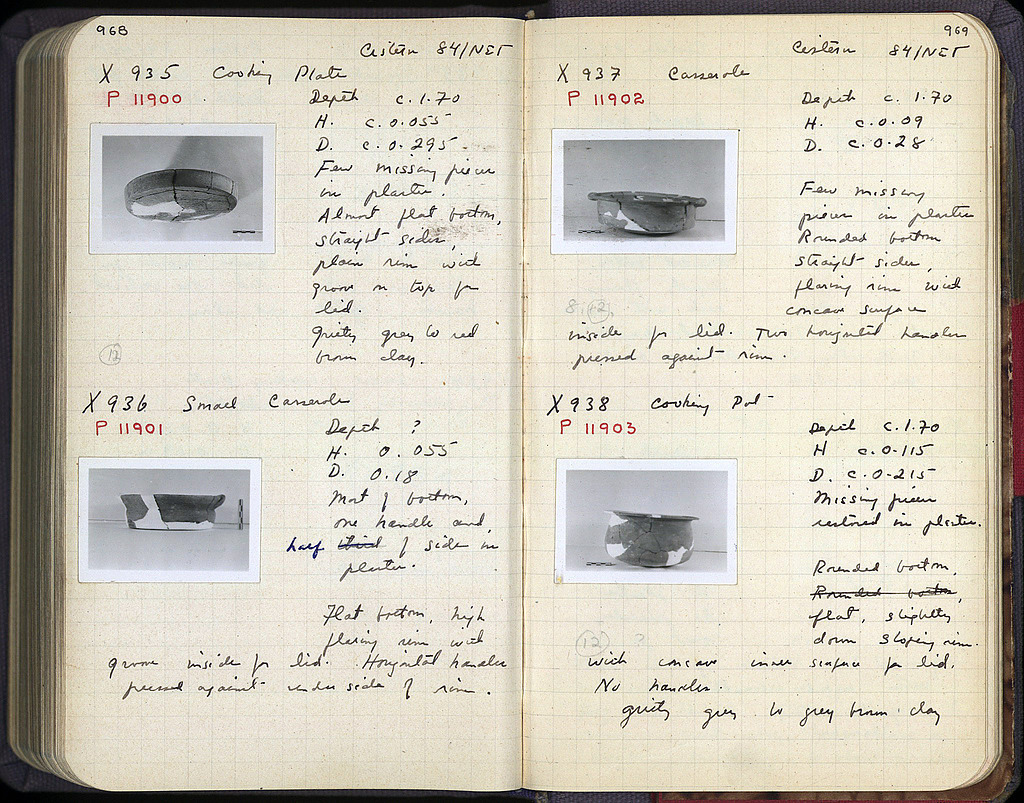 968
Cistern 84/NET
X 935 Cooking Plate
P 11900
Depth c. 1.70
H. c. 0.055
D. c. 0.295
Few missing pieces
in plaster.
Almost flat bottom,
straight sides,
plain rim with
groove on top for
lid.
Gritty grey to red
brown clay.
12
X 936 Small Casserole
P 11901
Depth ?
H. 0.055
D. 0.18
Most of bottom,
one handle and,
half third of side in
plaster.
Flat bottom, high
flaring rim with
groove inside for lid. Horizontal handles
pressed against under side of rim.
969
Cistern 84/NET
X 937 Casserole
P 11902
Depth c. 1.70
H. c. 0.09
D. c. 0.28
Few missing
pieces in plaster
Rounded bottom
straight sides,
flaring rim with
concave surface
8, 12
inside for lid. Two horizontal handles
pressed against rim.
X 938 Cooking Pot
P 11903
Depth c. 1.70
H c. 0.115
D. c. 0.215
Missing pieces
restored in plaster.
Rounded bottom,
Rounded bottom,
flat, slightly
down sloping rim.
12 ?
with concave inner surface for lid.
No handles.
gritty grey to grey brown clay